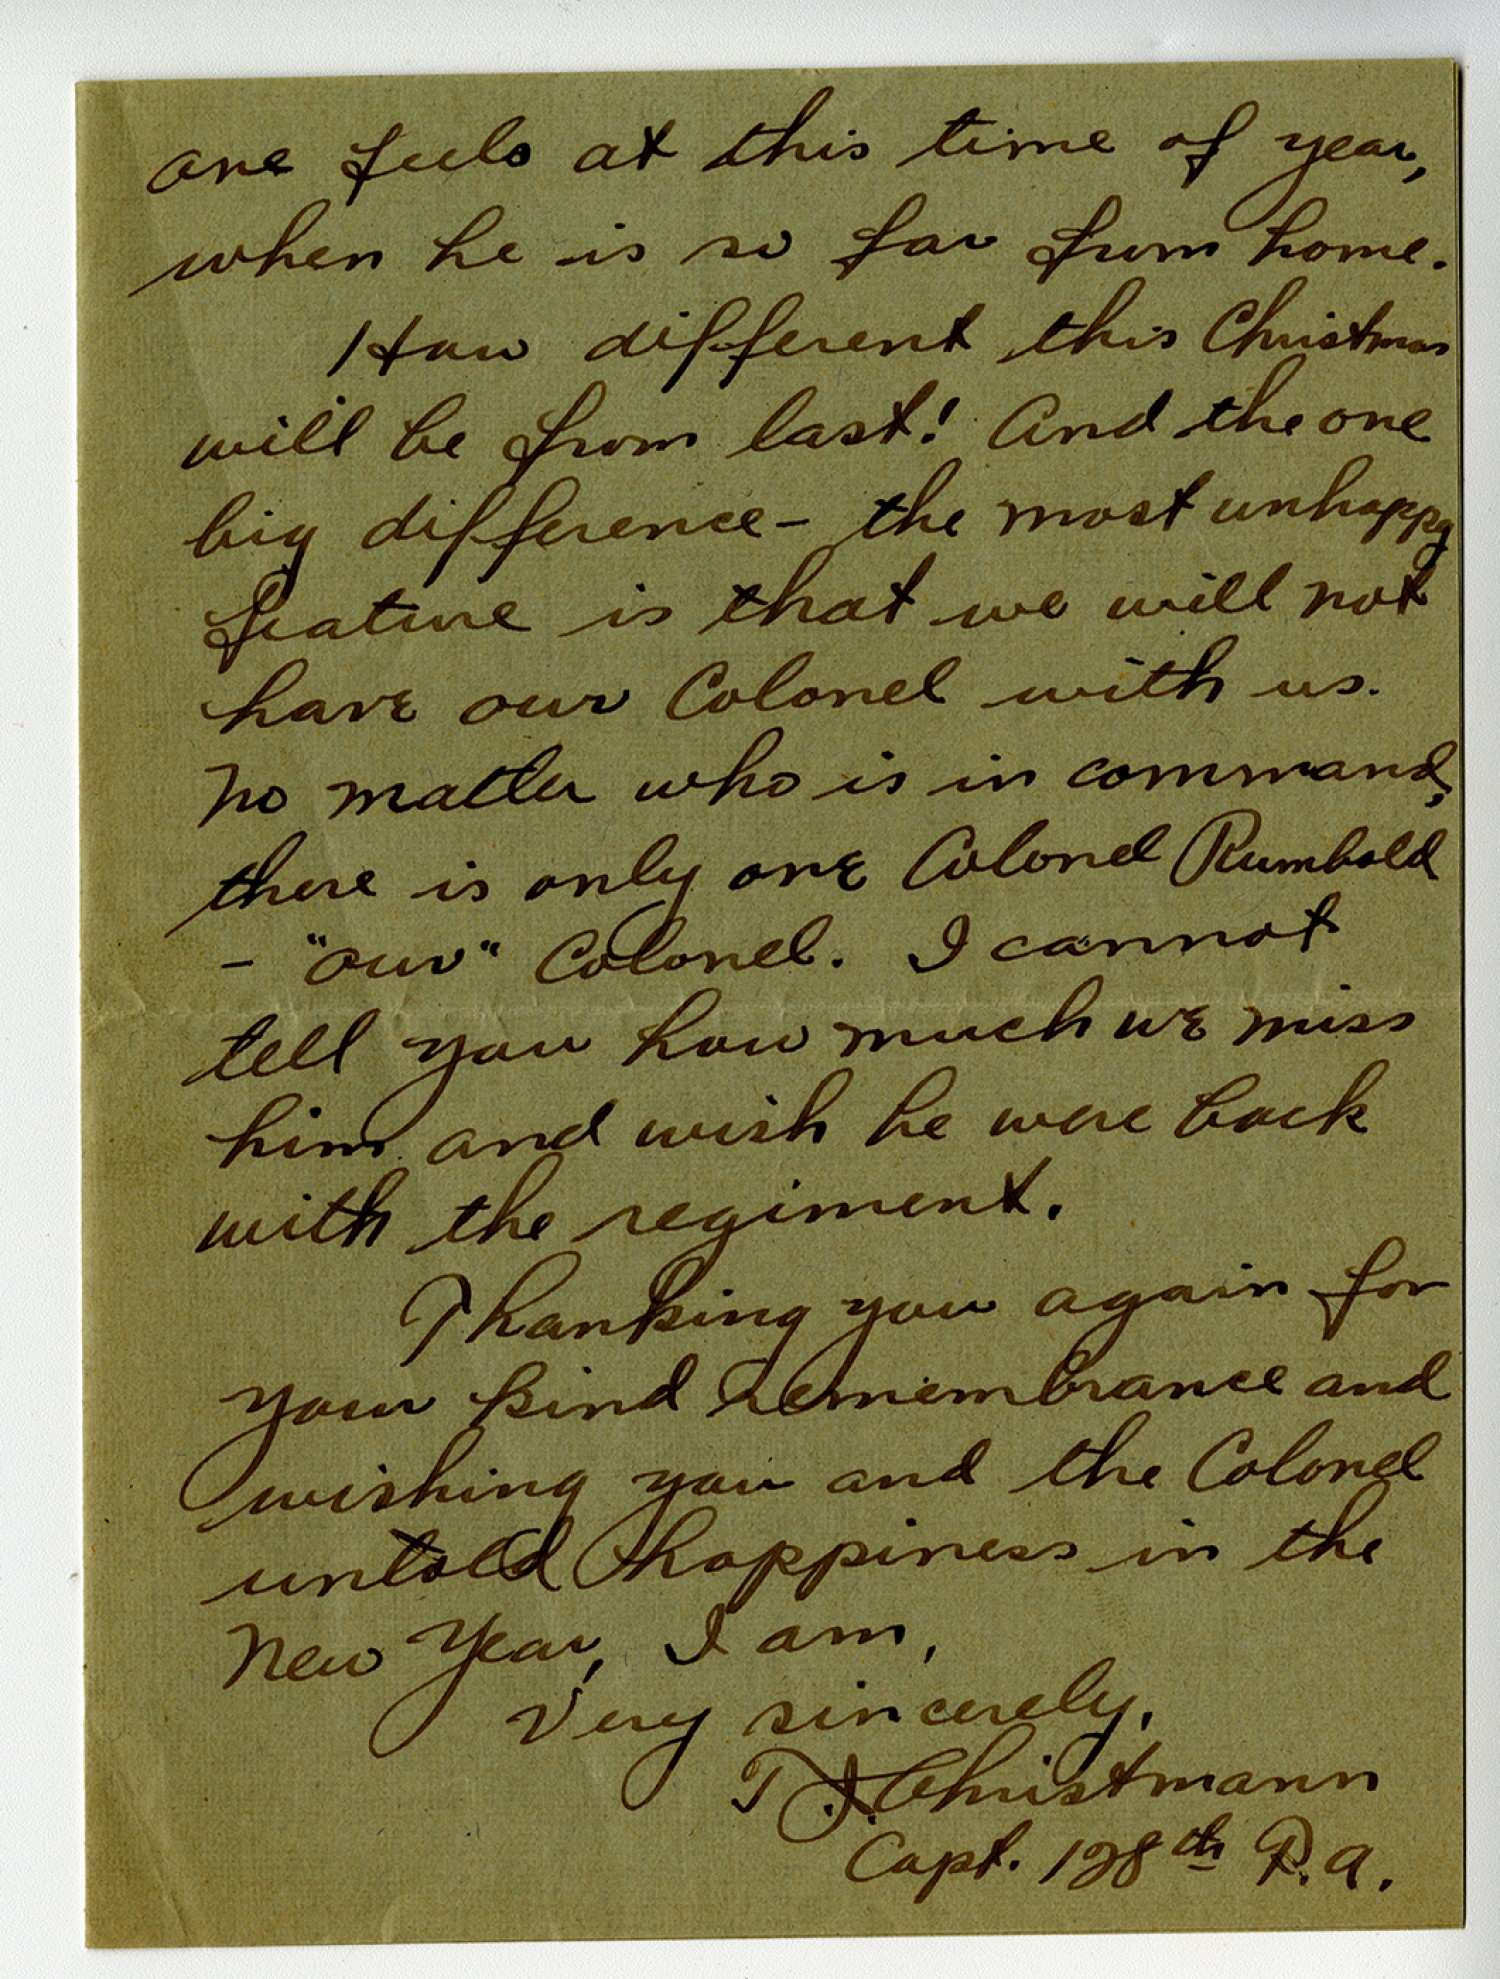 one feels at this time of year,
when he is so far from home.
How different this Christmas
will be from last! And the one
big difference - the most unhappy
feature is that we will not
have our Colonel with us.
No matter who is in command,
there is only one Colonel Rumbold
- "our" Colonel. I cannot
tell you how much we miss
him and wish he were back
with the regiment.
Thanking you again for
your kind remembrance and
wishing you and the Colonel
untold happiness in the
New Year, I am,
Very sincerely,
T J. Christmann
Capt. 128th F.A.